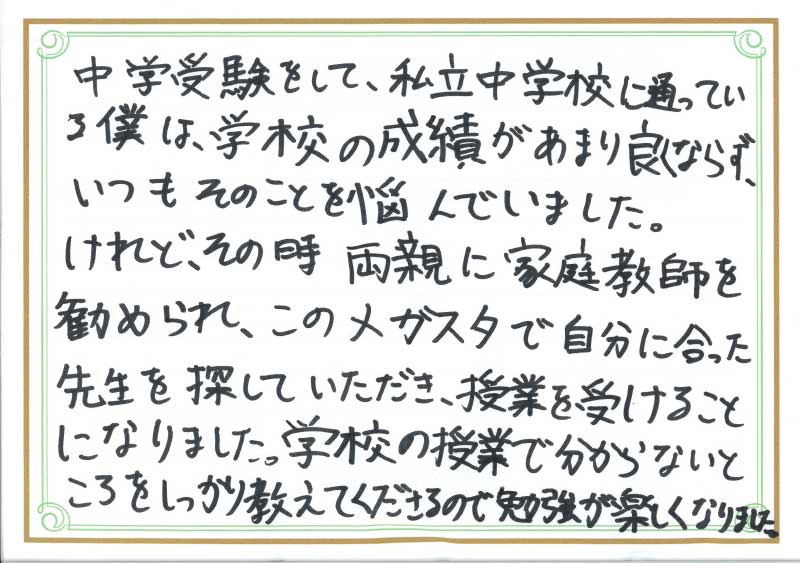 中学受験をして、私立中学校に通ってい
る僕は、学校の成績があまり良くならず、
いつもそのことを悩んでいました。
けれど、その時両親に家庭教師を
勧められ、このメガスタで自分に合った
先生を探していただき、授業を受けること
になりました。学校の授業で分からないと
ころをしっかり教えてくださるので勉強が楽しくなりました。